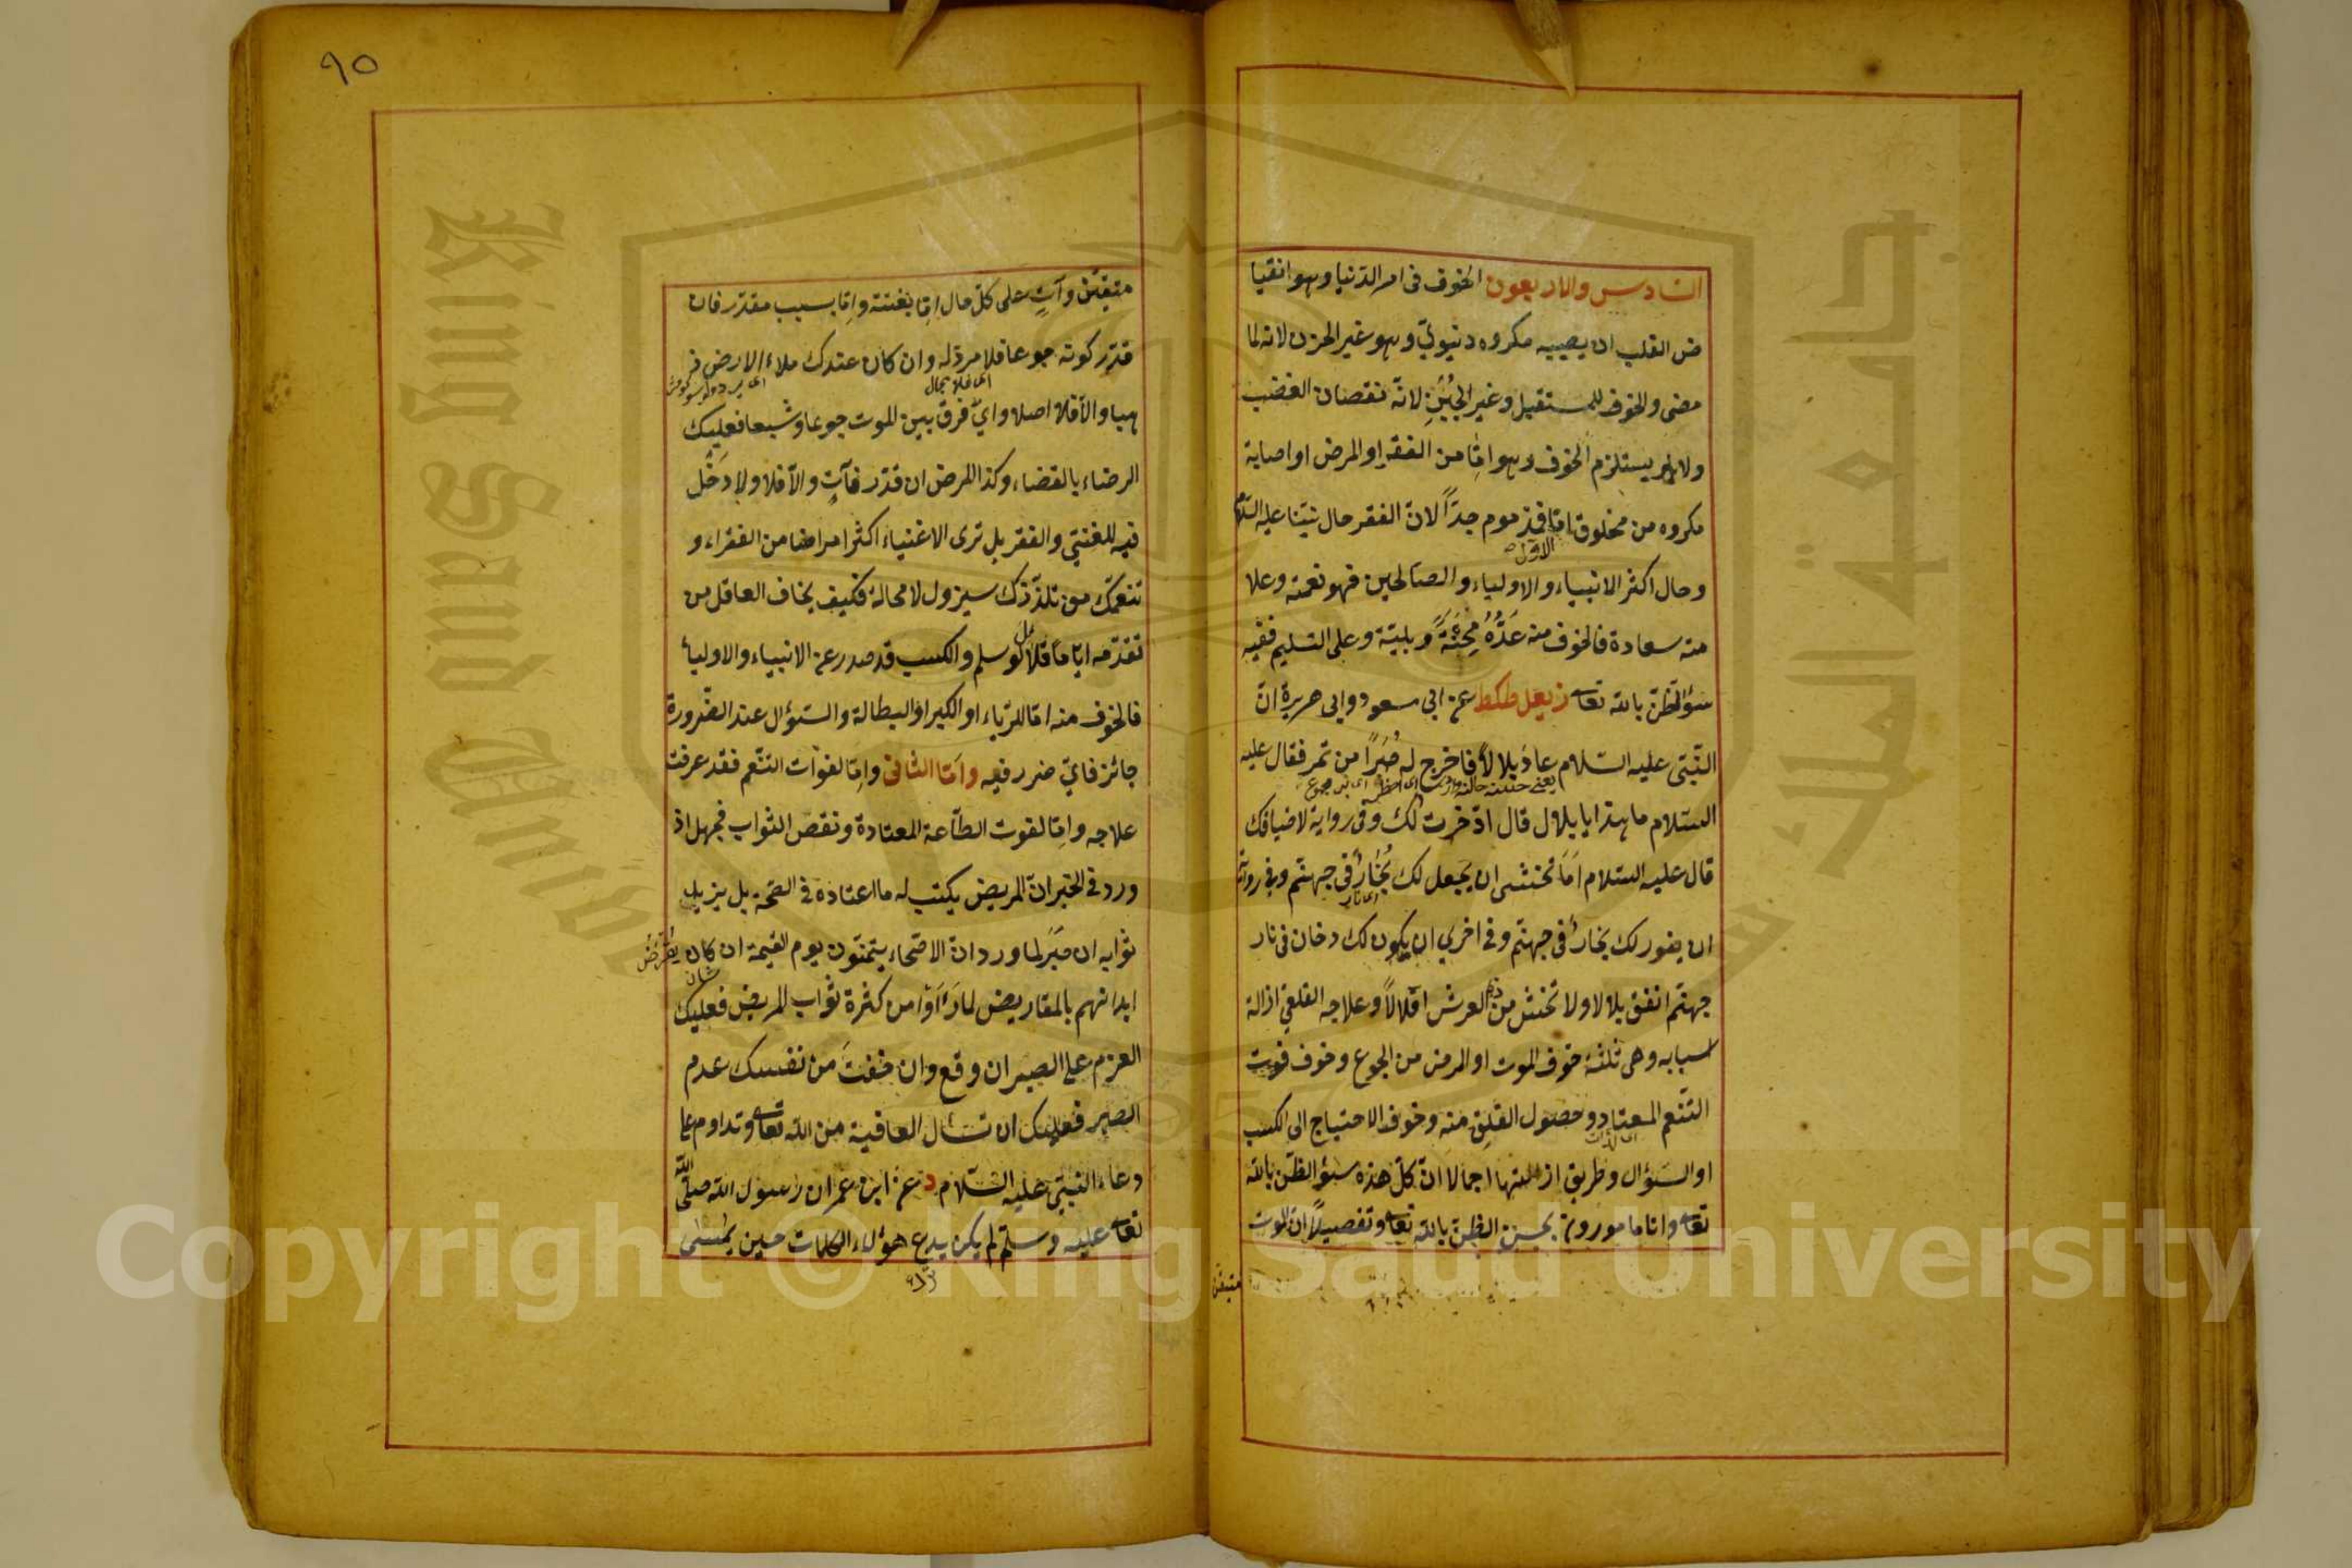 السادس والاربعون الخوف فى امر الدنيا وهو انقبا
ض القلب ان يصيبه مكروه دنيوىّ وهو غير الحزن لانه لما
مضى والخوف للمستقبل وغير الجُبْنِ لانّه نقصان الغضب
ولا يستلزم الخوف وهو امّا من الفقر او المرض او اصابة
مكروه من مخلوق امّا فمذموم جدّاً لانّ الفقر حال نبيّنا عليه السلام
الاوّل
وحال اكثر الانبياء والاولياء والصّالحين فهو نعمة وعلا
مة سعادة فالخوف منه عَدُّهُ مِحْنَةً وبليّة وعلى التسليم ففيه
سؤالظنّ بالله تعا ز يعل طكط عن ابى مسعود وابى هريرة انّ
النّبىّ عليه السّلام عاد بلالاً فاخرج له صُبَرًا من تمر فقال عليه
السّلام ما هذا يا بلال قال ادّخرت لك وفى رواية لاضيافك
قال عليه السّلام اَمَا تخشى ان يجعل لك بُخارٌ فى جهنّم وفى رواية
ان يفور لك بخارٌ فى جهنّم وفى اخرى ان يكون لك دخان فى نار
جهنّم انفق بلالا ولا تخش من ذى العرش اقلالاً وعلاجه القلعىّ ازالة
اسبابه وهى ثلثة خوف الموت او المرض من الجوع وخوف فوت
التّنعّم المعتاد وحصول القلق منه وخوف الاحتياج الى الكسب
اى لذّات
او السّؤال وطريق ازالتها اجمالا انّ كلّ هذه سؤ الظنّ بالله
تعا وانا مامورون بحسن الظنّ بالله تعا وتفصيلاً ان الموت
متيقّن
٩٥
متيقّن وآتٍ على كلّ حال امّا بغتة وامّا بسبب مقدّر فان
قدّر كونه جوعا فلا مردّ له وان كان عندك ملاء الارض ذ
اى فلا مجال
هبا والاّ فلا اصلا واىّ فرق بين الموت جوعا وشبعا فعليك
الرضاء بالقضاء وكذا المرض ان قدّر فآتٍ والاّ فلا ولا دَخْل
فيه للغنىّ والفقر بل ترى الاغنياء اكثر امراضا من الفقراء و
تنعمّك من تلذّذك سيزول لا محالة فكيف يخاف العاقل من
تقدّمه ايّاماً قلائل لو سلم والكسب قد صدر عن الانبياء والاوليأ
فالخوف منه امّا للريّاء او الكبر او البطالة والسّؤال عند الضّرورة
جائز فاىّ ضرر فيه وامّا الثانى وامّا لفوات التنعّم فقد عرفت
علاجه وامّا لفوت الطّاعة المعتادة ونقص الثواب فجهل اذ
ورد فى الخبر انّ المريض يكتب له ما اعتاده فى الصّحّة بل يزيد
ثوابه ان صَبَر لما ورد انّ الاصّحاء يتمنّون يوم القيمة ان كان يُقْرَضُ
ابدانهم بالمقاريض لما رَاَوْا من كثرة ثواب المريض فعليك
العزم على الصبر ان وقع وان خفتَ من نفسك عدم
الصبر فعليك ان تسأل العافية من الله تعا وتداوم على
دعاء النّبىّ عليه السّلام د عن ابن عمر ان رسول الله صلّى الله
تعا عليه وسلّم لم يكن يدع هؤلاء الكلمات حين يُمْسى
King Saud University
جامعة الملك سعود
Copyright © King Saud University